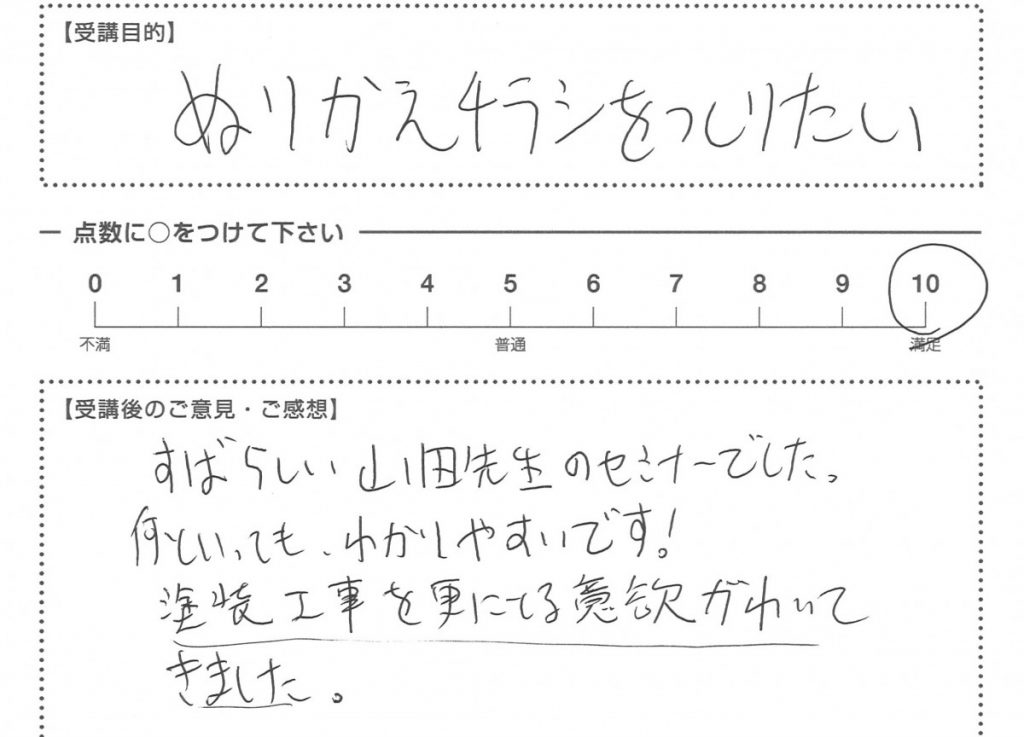 【受講目的】
ぬりかえチラシをつくりたい
点数に○をつけて下さい
0 1 2 3 4 5 6 7 8 9 10
不満 普通 満足
【受講後のご意見・ご感想】
すばらしい山田先生のセミナーでした。
何といっても、わかりやすいです!
塗装工事を更にてる意欲がわいて
きました。